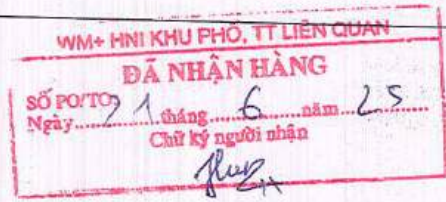 WM+ HNI KHU PHỐ, TT LIÊN QUAN
ĐÃ NHẬN HÀNG
SỐ PO/TO
Ngày 21 tháng 6 năm 25
Chữ ký người nhận